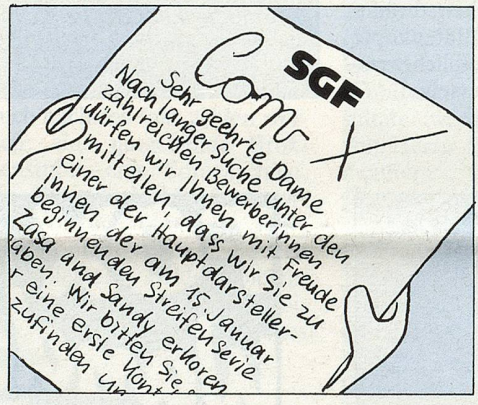 SGF
Com X
Sehr geehrte Dame
Nach langer Suche unter den
zahlreichen Bewerberinnen
dürfen wir Ihnen mit Freude
mitteilen, dass wir Sie zu
einer der Hauptdarsteller-
innen der am 15. Januar
beginnenden Streifenserie
Zasa and Sandy erkoren
haben. Wir bitten Sie
eine erste Kont
zufinden un